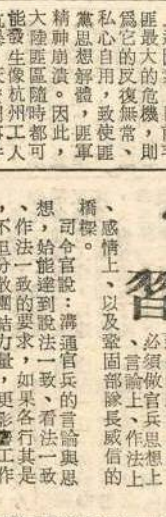 匪最大的危機，則
爲它的反復無常、
私心自用，致使匪
黨思想解體，匪軍
精神崩潰。因此，
大陸匪區隨時都可
能發生像杭州工人
習
必須做官兵思想上
、言論上、作法上
、感情上、以及鞏固部隊長威信的
橋樑。
司令官說：溝通官兵的言論與思
想，始能達到說法一致、看法一致
、作法一致的要求，如果各行其是
，不但分散團結力量，更影響工作